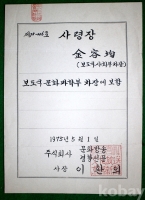 사령장
金容均
(보도국 사회부 차장)
보도국 문화과학부 차장에 보함
1975년 5월 1일
주식회사 문화방송
경향신문
사장 이환의
kobay